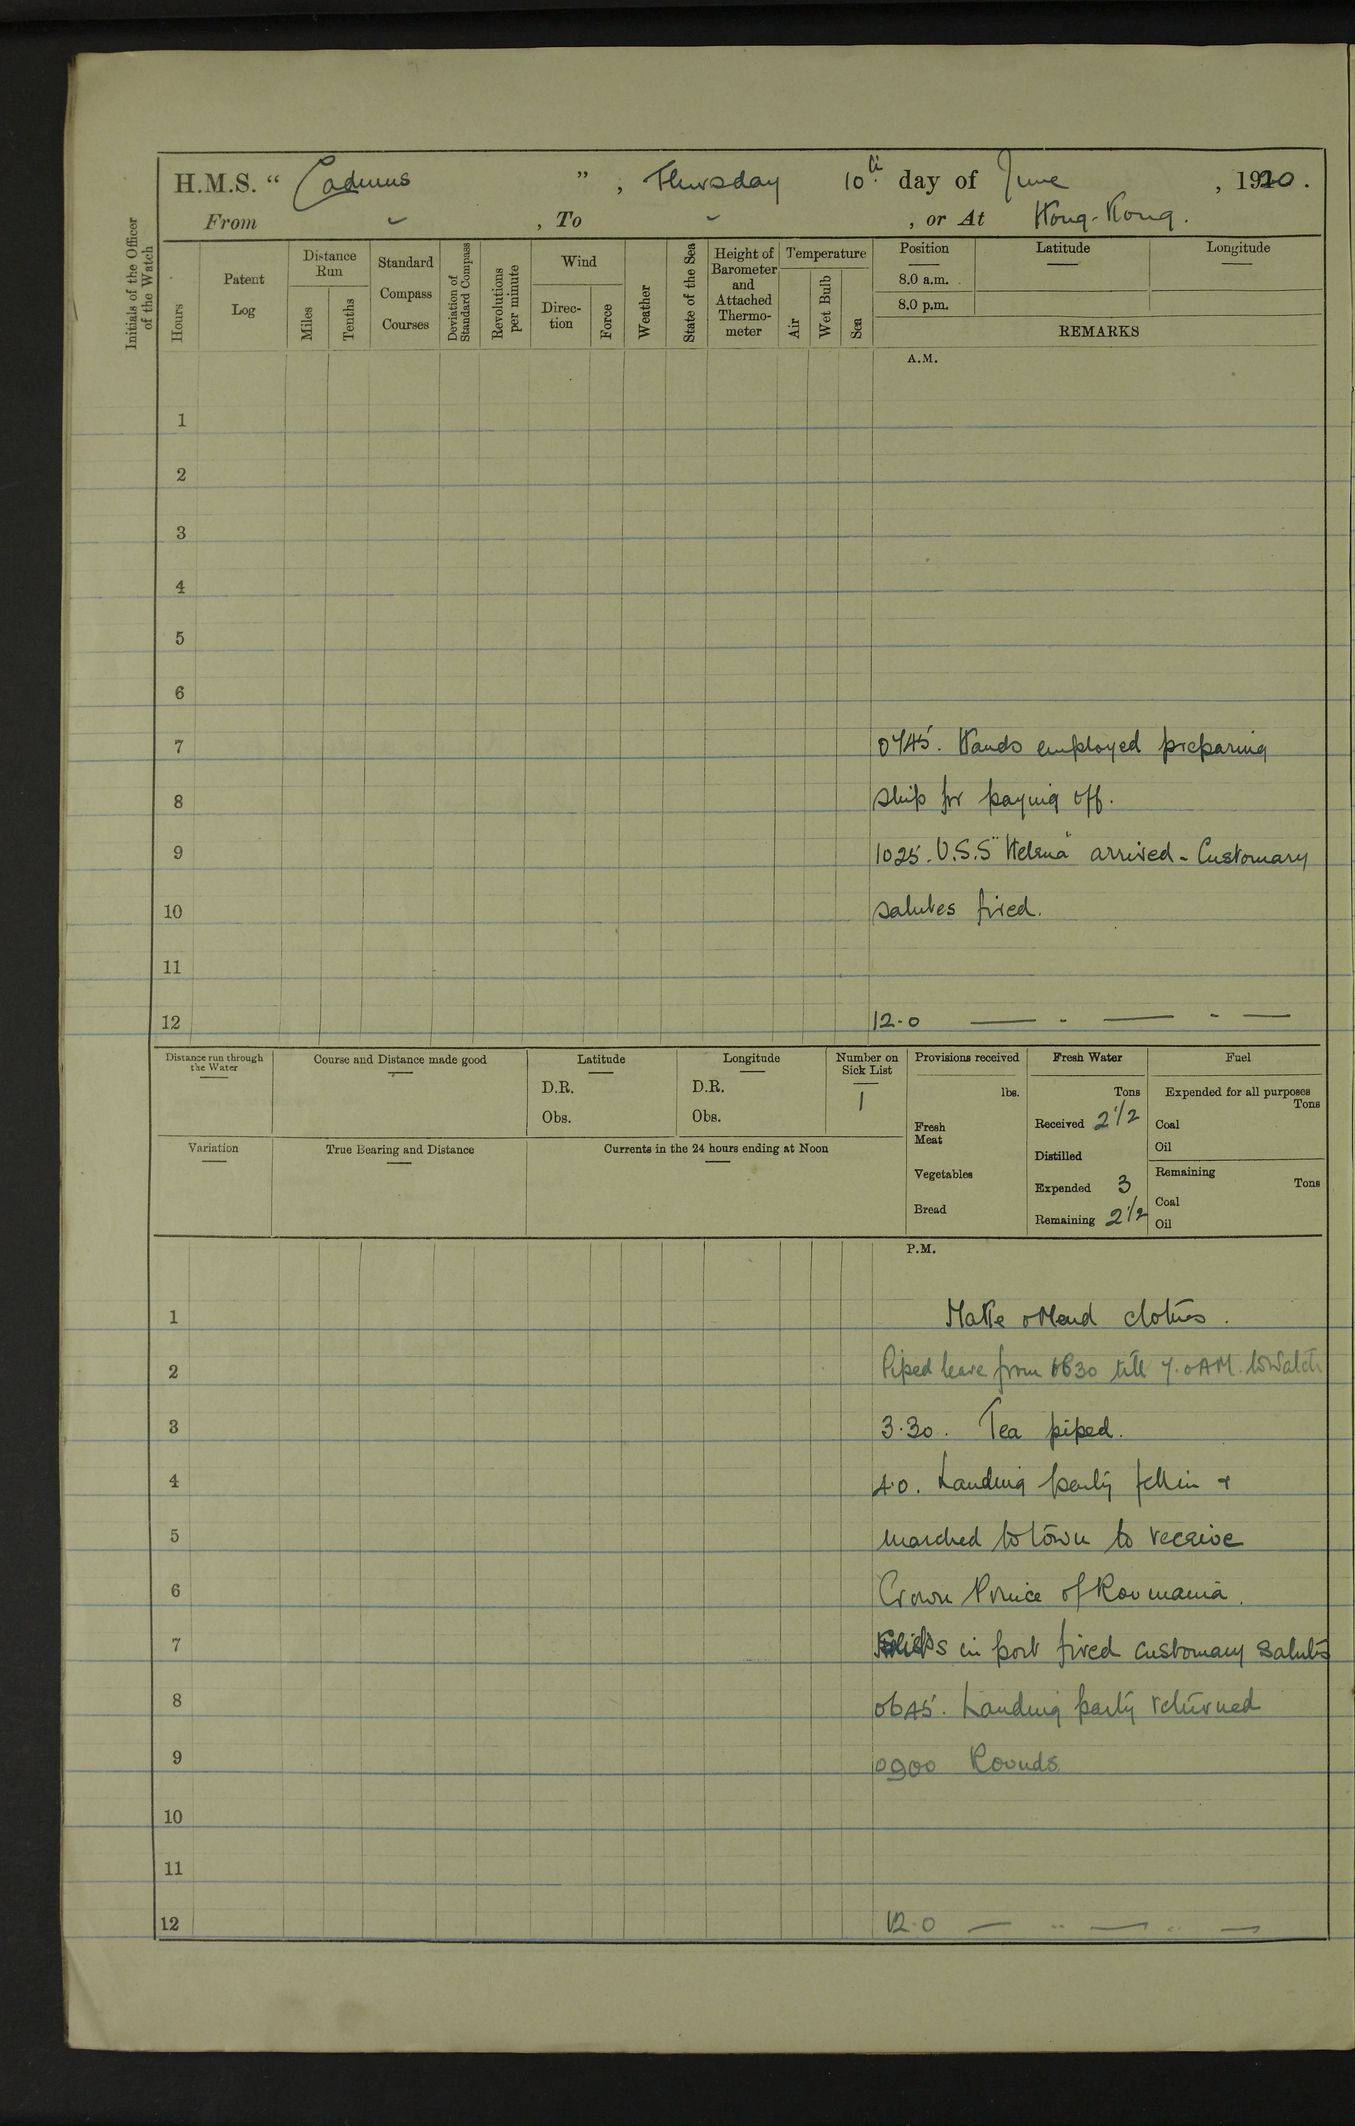 H.M.S. “ Cadmus ”, Thursday 10th day of June, 1920.
From ~, To ~, or At Hong-Kong.
Initials of the Officer of the Watch
Hours
Patent Log
Distance Run
Miles
Tenths
Standard Compass Courses
Deviation of Standard Compass
Revolutions per minute
Wind
Direction
Force
Weather
State of the Sea
Height of Barometer and Attached Thermometer
Temperature
Air
Wet Bulb
Sea
Position
Latitude
Longitude
8.0 a.m.
8.0 p.m.
REMARKS
A.M.
1
2
3
4
5
6
7 0745. Hands employed preparing
8 ship for paying off.
9 1025. U.S.S "Helena" arrived - Customary
10 salutes fired.
11
12 12.0 — - — - —
Distance run through the Water
Course and Distance made good
Latitude
D.R.
Obs.
Longitude
D.R.
Obs.
Number on Sick List
1
Provisions received
lbs.
Fresh Meat
Vegetables
Bread
Fresh Water
Tons
Received 2 1/2
Distilled
Expended 3
Remaining 2 1/2
Fuel
Expended for all purposes
Tons
Coal
Oil
Remaining
Tons
Coal
Oil
Variation
True Bearing and Distance
Currents in the 24 hours ending at Noon
P.M.
1 Make & Mend clothes.
2 Piped leave from till 7.0 AM. to Watch
3 3.30. Tea piped.
4 4.0. Landing party fell in &
5 marched to town to receive
6 Crown Prince of Roumania.
7 Ships in port fired customary salutes
8 0645. Landing party returned
9 0900 Rounds
10
11
12 12.0 — .. — .. —